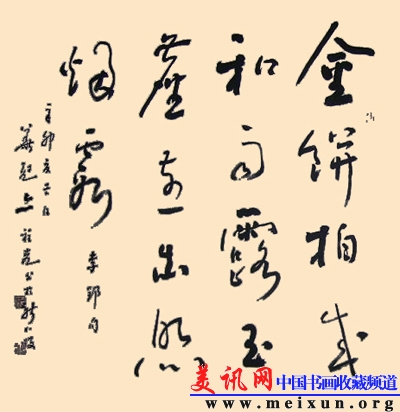 金餅拍成
和雨露玉
塵煎出照
煙霞
李郢句
辛卯
美讯网 中国书画收藏频道
www.meixun.org